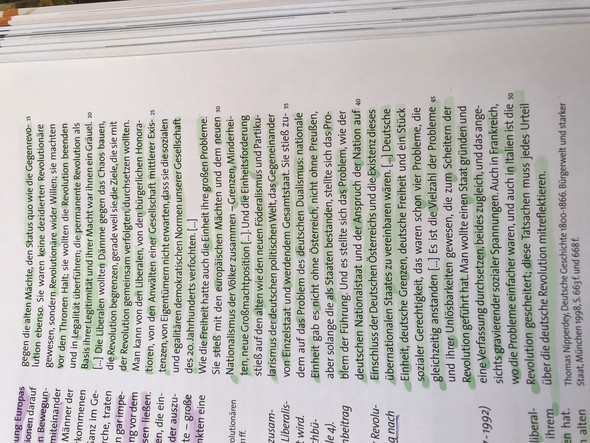 gegen die alten Mächte, den Status quo wie die Gegenrevo- 15
lution ebenso. Sie waren keine dezidierten Revolutionäre
gewesen, sondern Revolutionäre wider Willen; sie machten
vor den Thronen Halt, sie wollten die Revolution beenden
und in Legalität überführen; die permanente Revolution als
Basis ihrer Legitimität und ihrer Macht war ihnen ein Gräuel. 20
[...] Die Liberalen wollten Dämme gegen das Chaos bauen,
die Revolution begrenzen, gerade weil sie die Ziele, die sie mit
der Revolution gemeinsam verfolgten, durchsetzen wollten.
Man kann von den Liberalen, von den bürgerlichen Honora-
tioren, von den Anwälten einer Gesellschaft mittlerer Exis- 25
tenzen, von Eigentümern nicht erwarten, dass sie die sozialen
und egalitären demokratischen Normen unserer Gesellschaft
des 20. Jahrhunderts verfochten. [...]
Wie die Freiheit hatte auch die Einheit ihre großen Probleme.
Sie stieß mit den europäischen Mächten und dem neuen 30
Nationalismus der Völker zusammen – Grenzen, Minderhei-
ten, neue Großmachtposition [...]. Und die Einheitsforderung
stieß auf den alten wie den neuen Föderalismus und Partiku-
larismus der deutschen politischen Welt, das Gegeneinander
von Einzelstaat und werdendem Gesamtstaat. Sie stieß zu- 35
dem auf das Problem des deutschen Dualismus: nationale
Einheit gab es nicht ohne Österreich, nicht ohne Preußen,
aber solange die als Staaten bestanden, stellte sich das Pro-
blem der Führung. Und es stellte sich das Problem, wie der
deutschen Nationalstaat und der Anspruch der Nation auf 40
Einschluss der Deutschen Österreichs und die Existenz dieses
übernationalen Staates zu vereinbaren wären. [...] Deutsche
Einheit, deutsche Grenzen, deutsche Freiheit und ein Stück
sozialer Gerechtigkeit, das waren schon vier Probleme, die
gleichzeitig anstanden [...] Es ist die Vielzahl der Probleme 45
und ihrer Unlösbarkeiten gewesen, die zum Scheitern der
Revolution geführt hat. Man wollte einen Staat gründen und
eine Verfassung durchsetzen, beides zugleich, und das ange-
sichts gravierender sozialer Spannungen. Auch in Frankreich,
wo die Probleme einfacher waren, und auch in Italien ist die 50
Revolution gescheitert, diese Tatsachen muss jedes Urteil
über die deutsche Revolution mitreflektieren.
Thomas Nipperdey, Deutsche Geschichte 1800-1866. Bürgerwelt und starker
Staat, München 1998, S. 663 f. und 668 f.